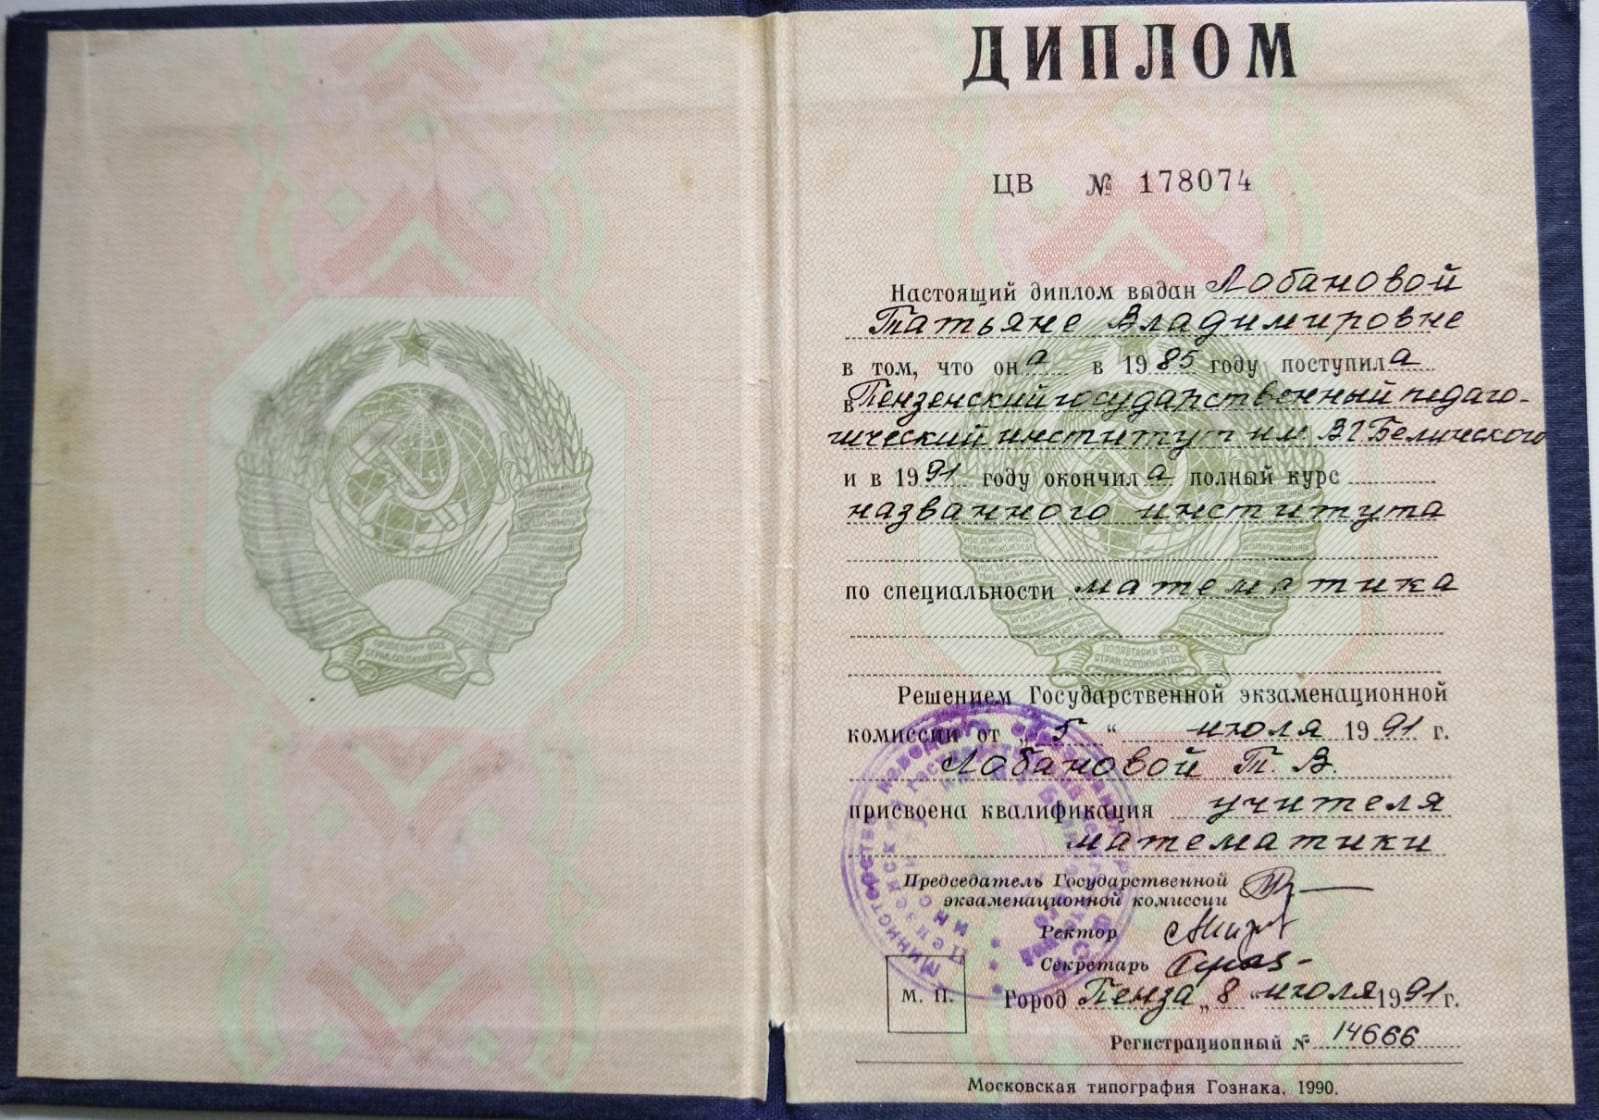 ПРОЛЕТАРИИ ВСЕХ
СТРАН, СОЕДИНЯЙТЕСЬ!
ДИПЛОМ
ЦВ № 178074
Настоящий диплом выдан Лобановой
Татьяне Владимировне
в том, что она в 1985 году поступила
в Пензенский государственный педаго-
гический институт им. В.Г. Белинского
и в 1991 году окончила полный курс
названного института
по специальности математика
ПРОЛЕТАРИИ ВСЕХ
СТРАН, СОЕДИНЯЙТЕСЬ!
Решением Государственной экзаменационной
комиссии от „5“ июля 1991 г.
Лобановой Т. В.
присвоена квалификация учителя
математики
Председатель Государственной
экзаменационной комиссии
Ректор
Секретарь
М. П.
Город Пенза „8“ июля 1991 г.
Регистрационный № 14666
Московская типография Гознака. 1990.